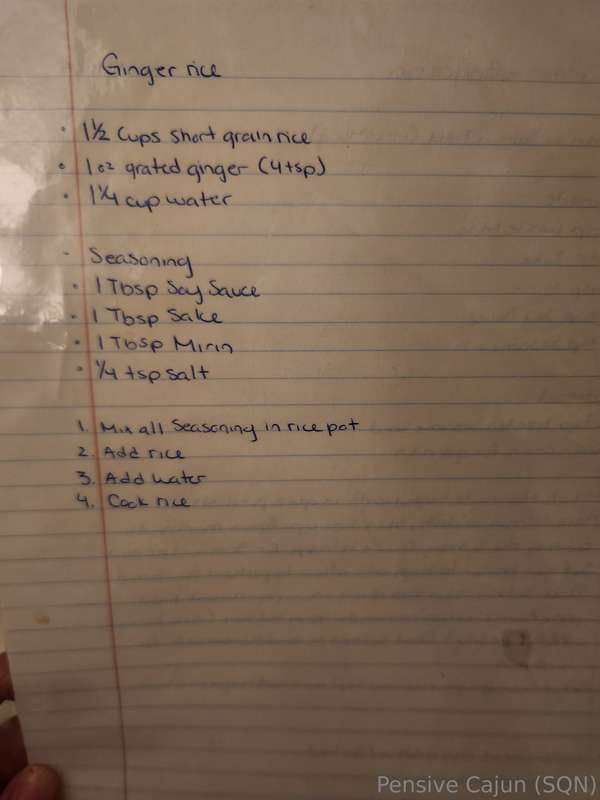 Ginger rice
• 1½ Cups short grain rice
• 1 oz grated ginger (4tsp)
• 1¼ cup water
- Seasoning
• 1 Tbsp Soy Sauce
• 1 Tbsp Sake
• 1 Tbsp Mirin
• ¼ tsp salt
1. Mix all Seasoning in rice pot
2. Add rice
3. Add water
4. Cook rice
Pensive Cajun (SQN)